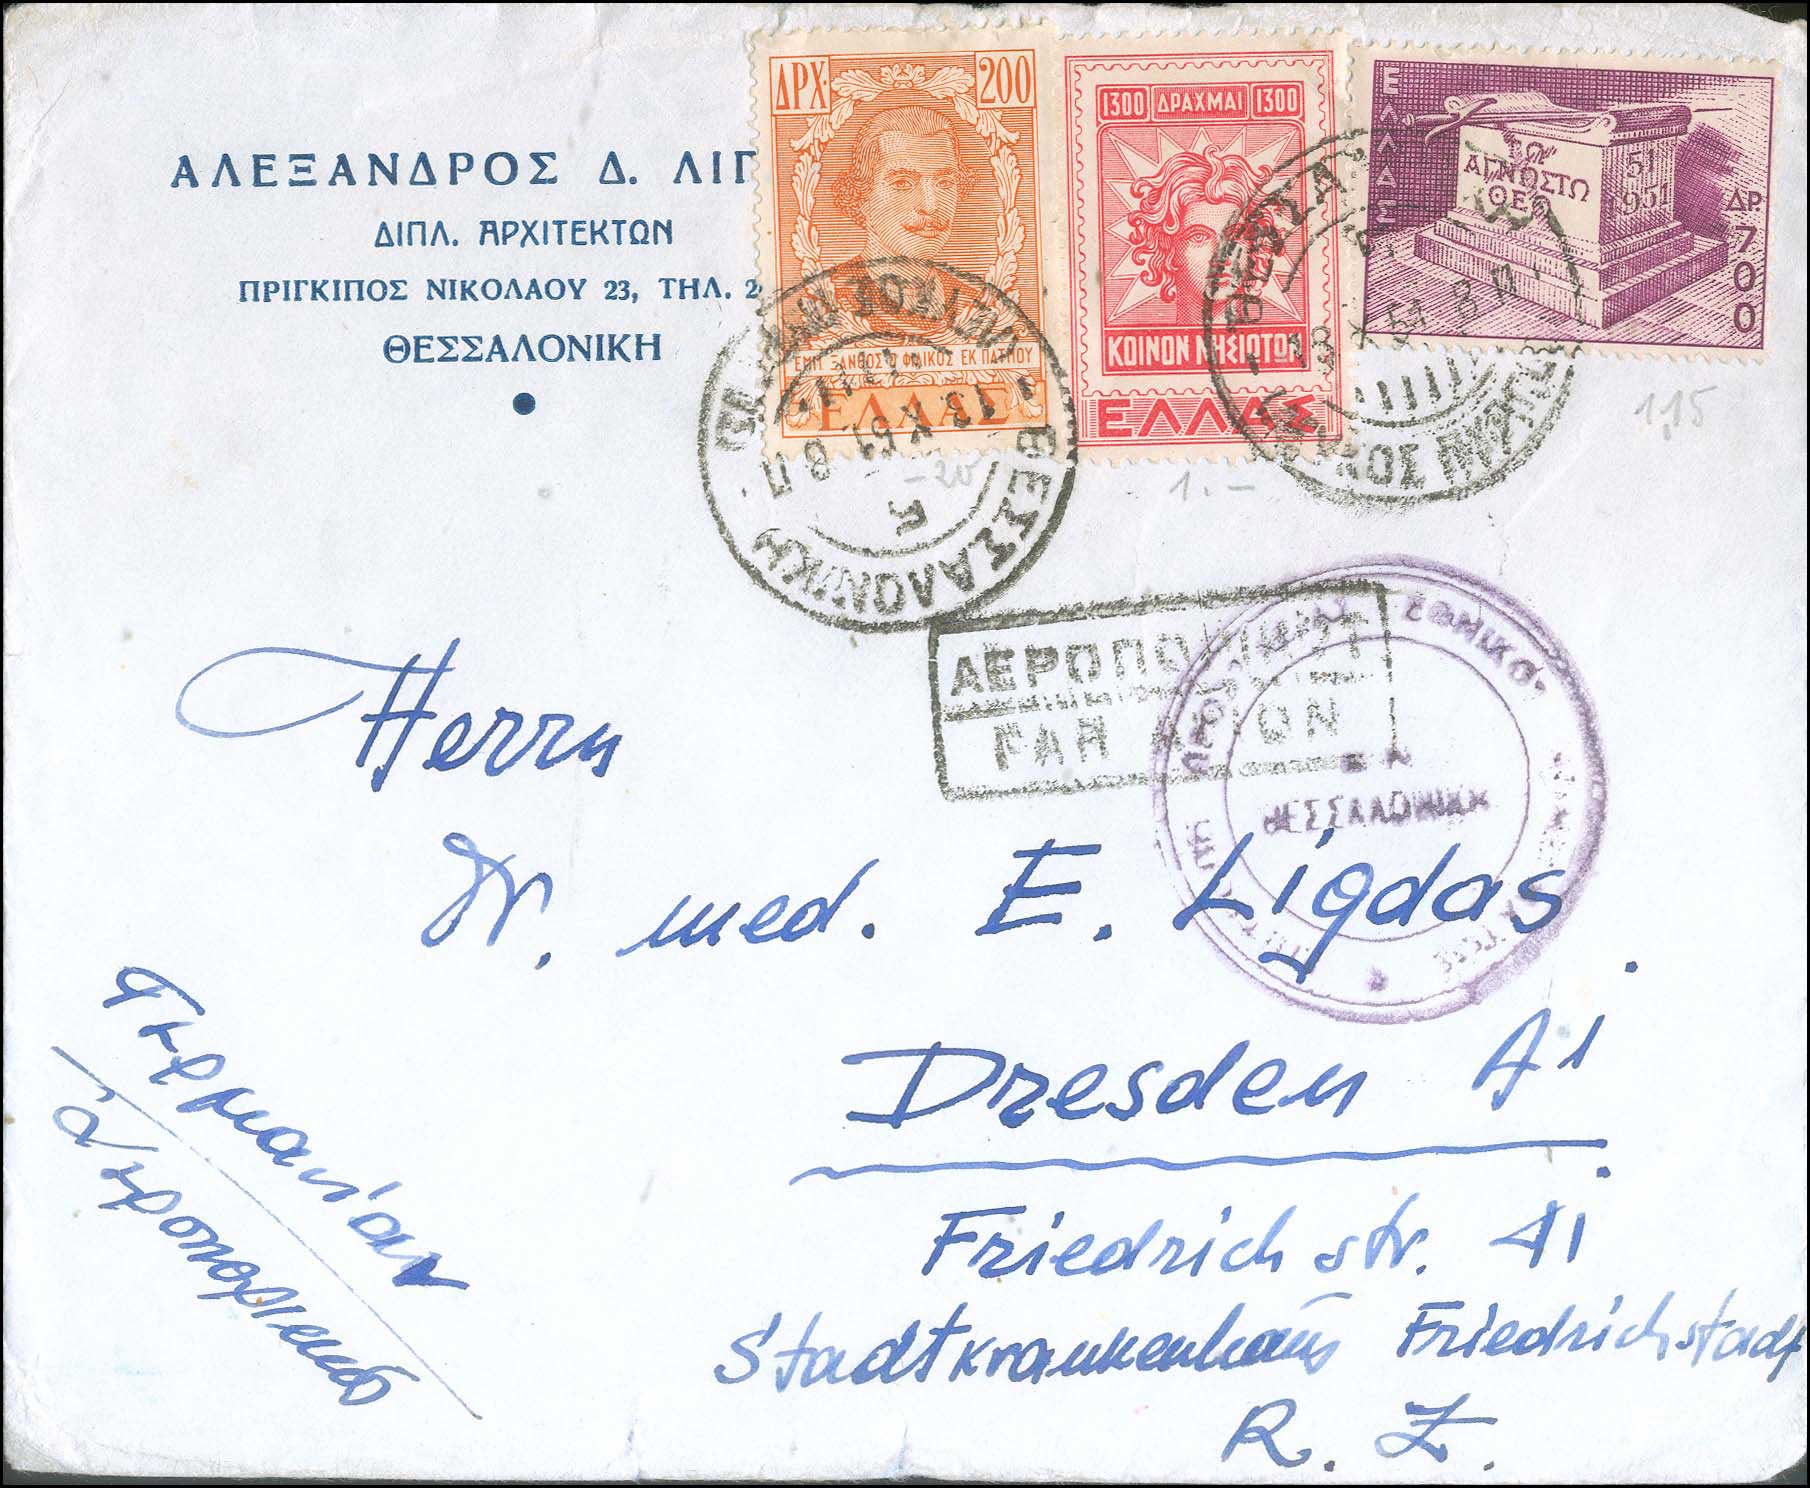 ΑΛΕΞΑΝΔΡΟΣ Δ. ΛΙΓ
ΔΙΠΛ. ΑΡΧΙΤΕΚΤΩΝ
ΠΡΙΓΚΙΠΟΣ ΝΙΚΟΛΑΟΥ 23, ΤΗΛ. 2
ΘΕΣΣΑΛΟΝΙΚΗ
ΔΡΧ. 200
ΞΑΝΘΟΣ Ο ΦΙΛΙΚΟΣ ΕΚ ΠΑΤΜΟΥ
ΕΛΛΑΣ
1300 ΔΡΑΧΜΑΙ 1300
ΚΟΙΝΟΝ ΝΗΣΙΩΤΩΝ
ΕΛΛΑΣ
ΕΛΛΑΣ
ΤΩ
ΑΓΝΩΣΤΩ
ΘΕΩ
51
1951
ΔΡ.
700
ΘΕΣΣΑΛΟΝΙΚΗ
13 X 51 8 Π
5
13 X 51 8 Π
-20
1.-
1,15
ΑΕΡΟΠΟΡΙΚΩΣ
PAR AVION
ΘΕΣΣΑΛΟΝΙΚΗ
Herrn
Dr. med. E. Ligdas.
Dresden A1
Friedrichstr. 41
Stadtkrankenhaus Friedrichstadt
R. Z.
Γερμανίαν
ἀεροπορικῶς